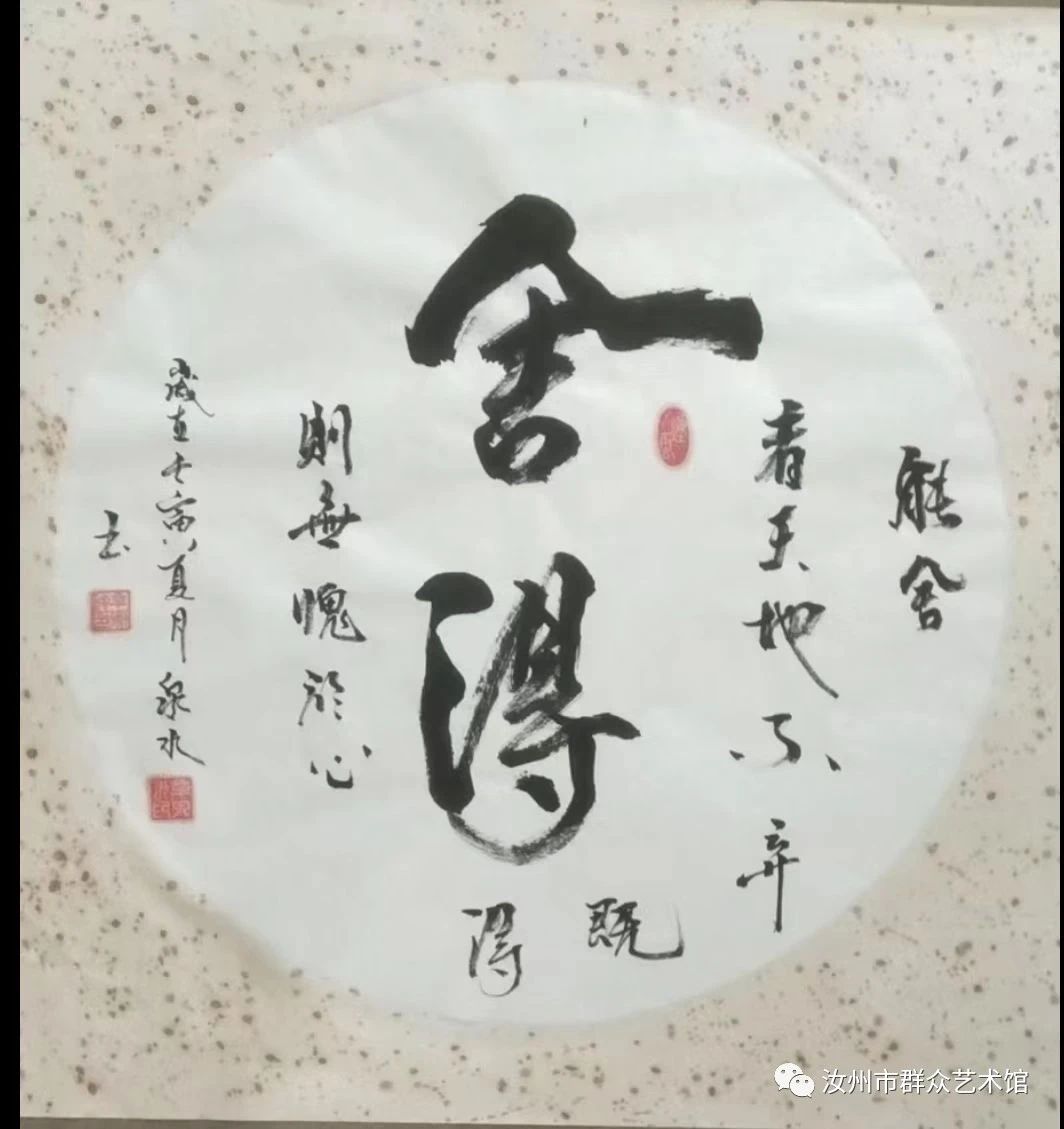 能舍
看天地不弃
既
得
舍得
则无愧於心
岁在壬寅夏月泉水
书
汝州市群众艺术馆